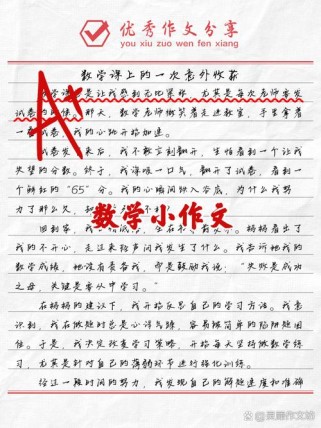 优秀作文分享
you xiu zuo wen fen xiang
数学课上的一次意外收获
数学课是让我感到无比紧张，尤其是每次老师要发
试卷的时候。那天，数学老师微笑着走进教室，手里拿着
一叠试卷，我的心跳开始加速。
试卷发下来后，我不敢立刻翻开，生怕看到一个让我
失望的分数。终于，我深吸一口气，翻开了试卷，看到一
个鲜红的“65”分。我的心瞬间跌入谷底，为什么我努
力了那么久，
数学小作文
回到家，我
妈妈看出了
我的不开心，走过来轻声问我发生了什么。我告诉她我的
数学成绩，她没有责备我，而是鼓励我说：“失败是成功
之母，关键是要从中学习。”
在妈妈的建议下，我开始反思自己的学习方法。我意
识到，我在做题时总是心浮气躁，容易被简单的陷阱题困
住。于是，我决定改变学习策略，开始每天坚持做数学练
习，尤其是针对自己的薄弱环节进行强化训练。
经过一段时间的努力，我发现自己的解题速度和准确
A+
@灵犀作文站